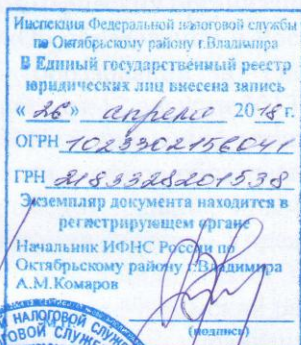 Инспекция Федеральной налоговой службы
по Октябрьскому району г.Владимира
В Единый государственный реестр
юридических лиц внесена запись
« 26 » апреля 2018 г.
ОГРН 1023302156041
ГРН 2183328201538
Экземпляр документа находится в
регистрирующем органе
Начальник ИФНС России по
Октябрьскому району г.Владимира
А.М.Комаров
(подпись)
Й НАЛОГОВОЙ СЛУЖ
ГОВОЙ СЛУЖ